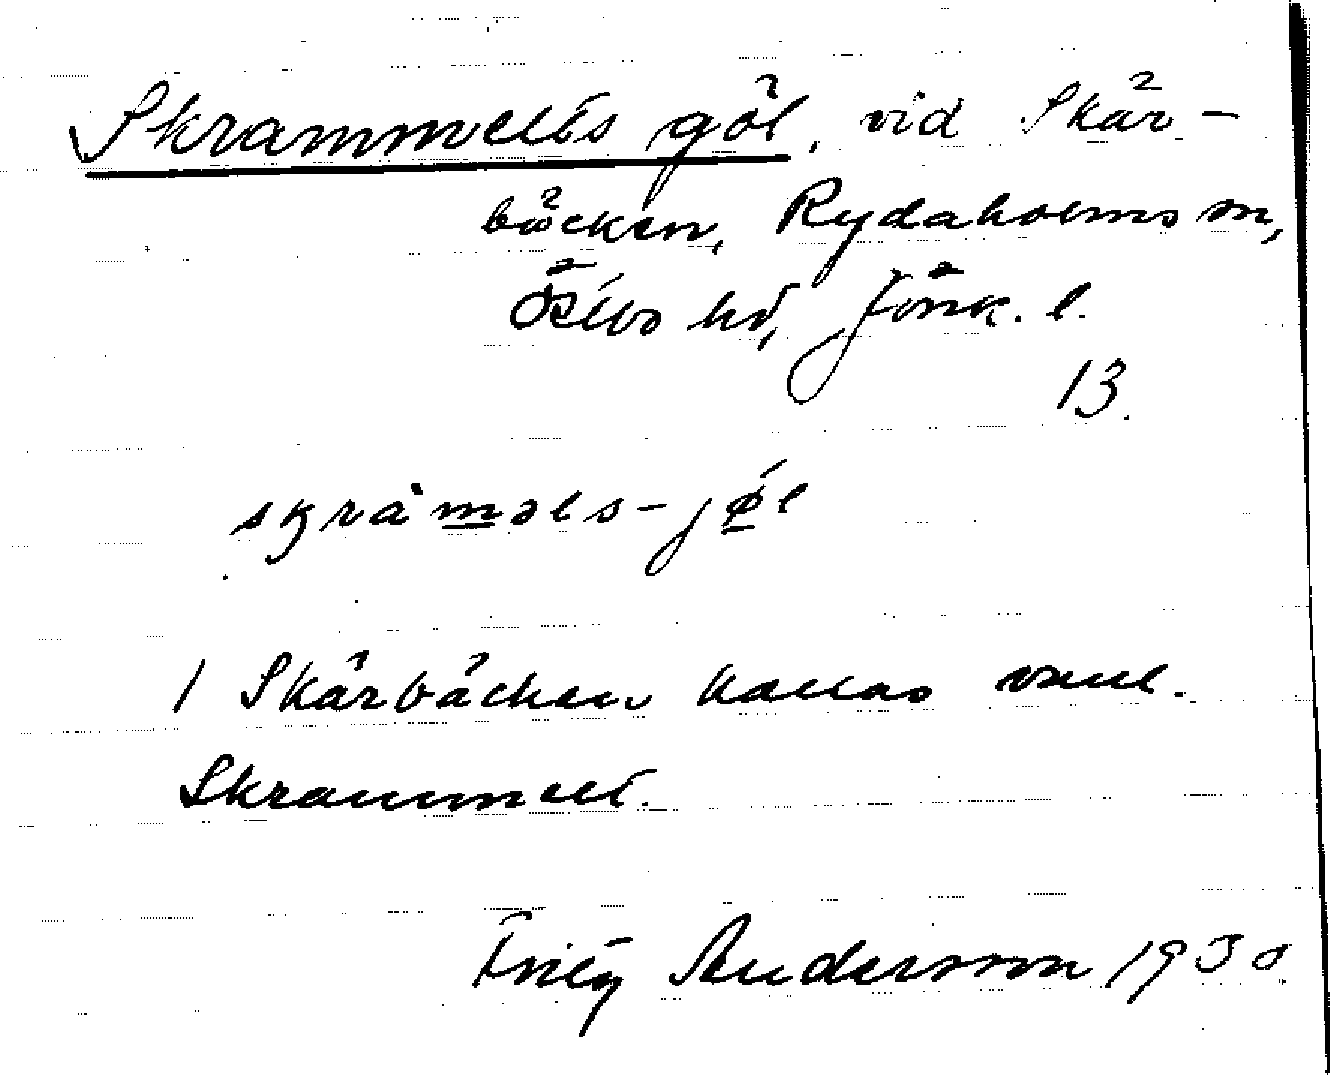 Skrammels göl, vid Skär-
bäcken, Rydaholms sn,
Östbo hd, Jönk. l.
13.
skràməls-jǿl
/ Skärbäcken kallas vanl.
Skrammel.
Andersson 1930.